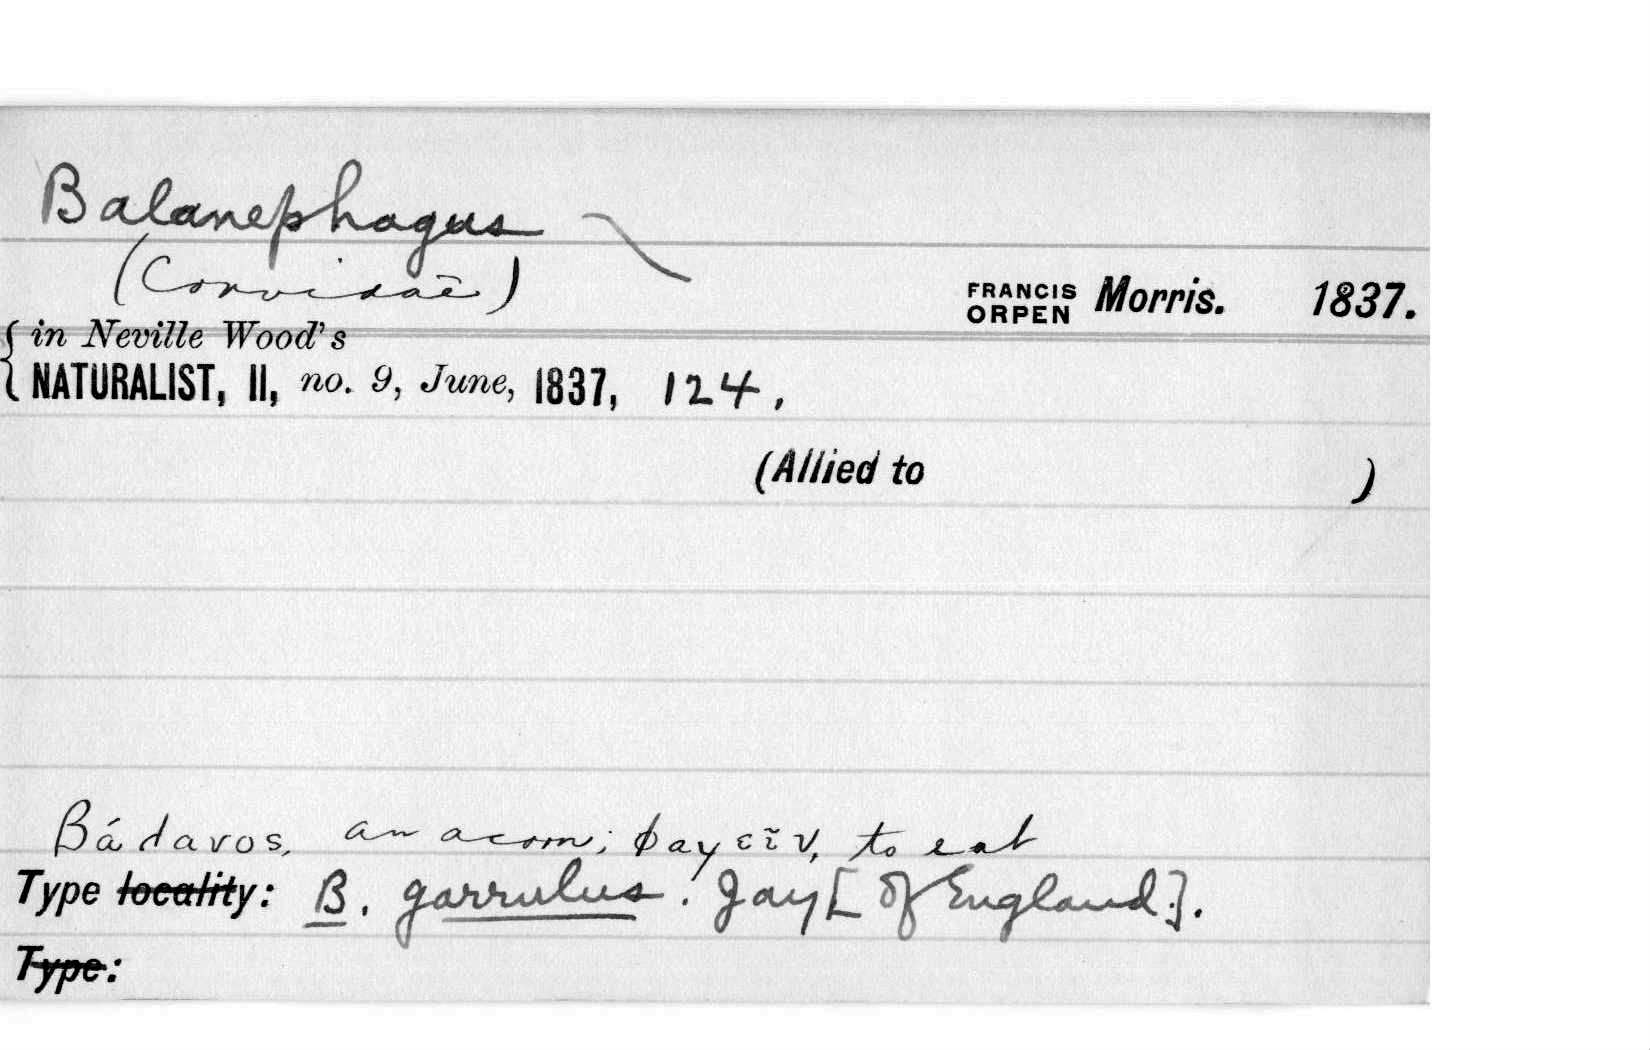 Balanephagus
(Corvidae)
FRANCIS ORPEN Morris. 1837.
in Neville Wood's
NATURALIST, II, no. 9, June, 1837, 124.
(Allied to )
Βάλανος, an acorn; φαγεῖν, to eat
Type locality: B. garrulus. Jay [of England.].
Type: